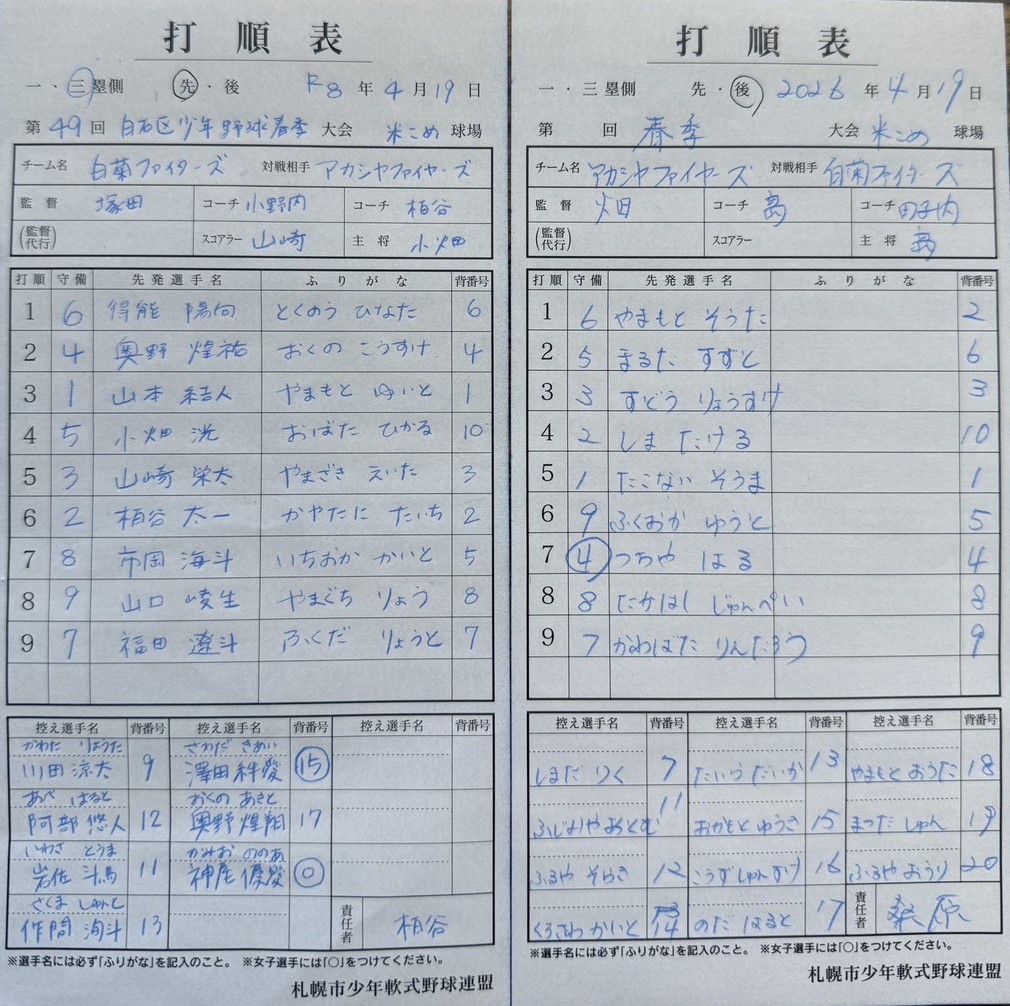 打順表
一・三塁側 先・後 R8年4月19日
第49回 白石区少年野球春季大会 米こめ球場
チーム名 白菊ファイターズ 対戦相手 アカシヤファイヤーズ
監督 塚田 コーチ 小野内 コーチ 柏谷
(監督代行) スコアラー 山崎 主将 小畑
打順 守備 先発選手名 ふりがな 背番号
1 6 得能 陽向 とくのう ひなた 6
2 4 奥野 煌祐 おくの こうすけ 4
3 1 山本 結人 やまもと ゆいと 1
4 5 小畑 洸 おばた ひかる 10
5 3 山崎 栄太 やまざき えいた 3
6 2 柏谷 太一 かやたに たいち 2
7 8 市岡 海斗 いちおか かいと 5
8 9 山口 崚生 やまぐち りょう 8
9 7 福田 遼斗 ふくだ りょうと 7
控え選手名 背番号 控え選手名 背番号 控え選手名 背番号
かわた りょうた さわだ きあい
川田 涼太 9 澤田 絆愛 15
あべ はると おくの あきと
阿部 悠人 12 奥野 煌翔 17
いわさ とうま かみお ののあ
岩佐 斗馬 11 神尾 優愛 0
さくま しゅんと
作間 洵斗 13 責任者 柏谷
※選手名には必ず「ふりがな」を記入のこと。 ※女子選手には「○」をつけてください。
札幌市少年軟式野球連盟
打順表
一・三塁側 先・後 2026年4月19日
第 回 春季 大会 米こめ球場
チーム名 アカシヤファイヤーズ 対戦相手 白菊ファイターズ
監督 畑 コーチ 島 コーチ 田子内
(監督代行) スコアラー 主将 島
打順 守備 先発選手名 ふりがな 背番号
1 6 やまもと そうた 2
2 5 まるた すずと 6
3 3 すどう りょうすけ 3
4 2 しま たける 10
5 1 たこない そうま 1
6 9 ふくおか ゆうと 5
7 4 つちや はる 4
8 8 たかはし じゅんぺい 8
9 7 かわばた りんたろう 9
控え選手名 背番号 控え選手名 背番号 控え選手名 背番号
しまだ りく 7 たいら だいか 13 やまもと おうた 18
ふじのや おとむ 11 おかもと ゆうき 15 まつだ しゅん 19
ふるや そらき 12 こうず しゅんすけ 16 ふるや おうり 20
くろさわ かいと 14 のだ はると 17 責任者 桑原
※選手名には必ず「ふりがな」を記入のこと。 ※女子選手には「○」をつけてください。
札幌市少年軟式野球連盟